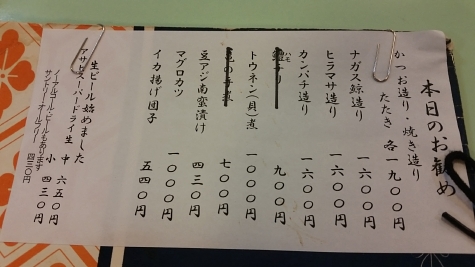 本日のお勧め
かつお造り・焼き造り
たたき 各一九〇〇円
ナガス鯨造り 一六〇〇円
ヒラマサ造り 一六〇〇円
カンパチ造り 一六〇〇円
ハモ
九〇〇円
トウネン(貝)煮 一〇〇〇円
七〇〇円
豆アジ南蛮漬け 四三〇円
マグロカツ 一〇〇〇円
イカ揚げ団子 五四〇円
生ビール始めました
アサヒスーパードライ生 中 六五〇円
小 四三〇円
ノンアルコールビールもあります
サントリー オールフリー 四三〇円